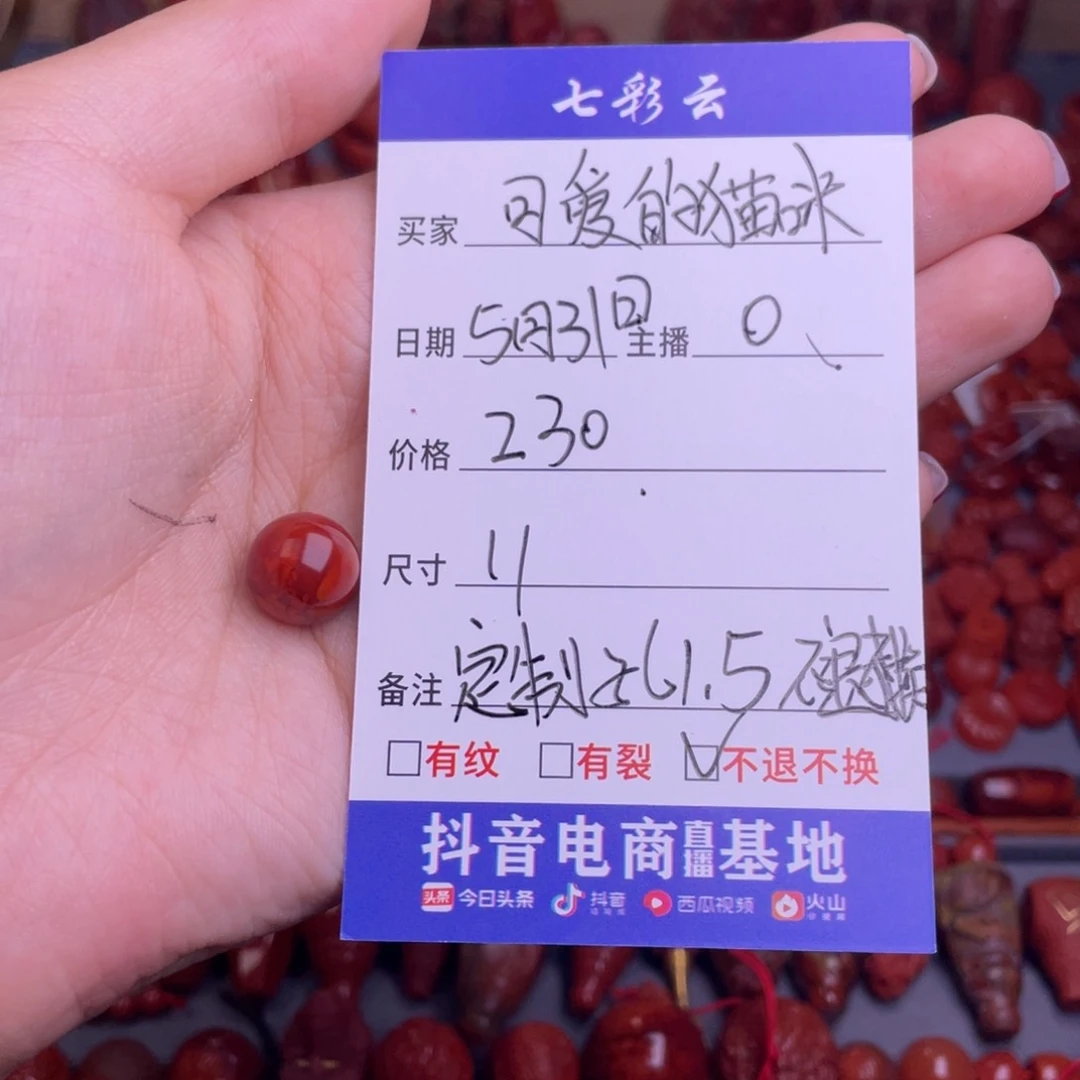 七彩云
买家 可爱的猫咪
日期 5月31日 主播 0
价格 230
尺寸 11
备注 定制 1.5 不退换
有纹 有裂 不退不换
抖音电商直播基地
头条 今日头条 抖音 西瓜视频 火山